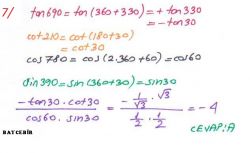 7/ tan690 = tan(360+330) = + tan330
= - tan30
cot210 = cot(180+30)
= cot30
cos780 = cos(2.360+60) = cos60
sin390 = sin(360+30) = sin30
-tan30 . cot30 / cos60 . sin30 = - 1/√3 . √3 / 1/2 . 1/2 = -4
CEVAP: A
BAYCEBİR